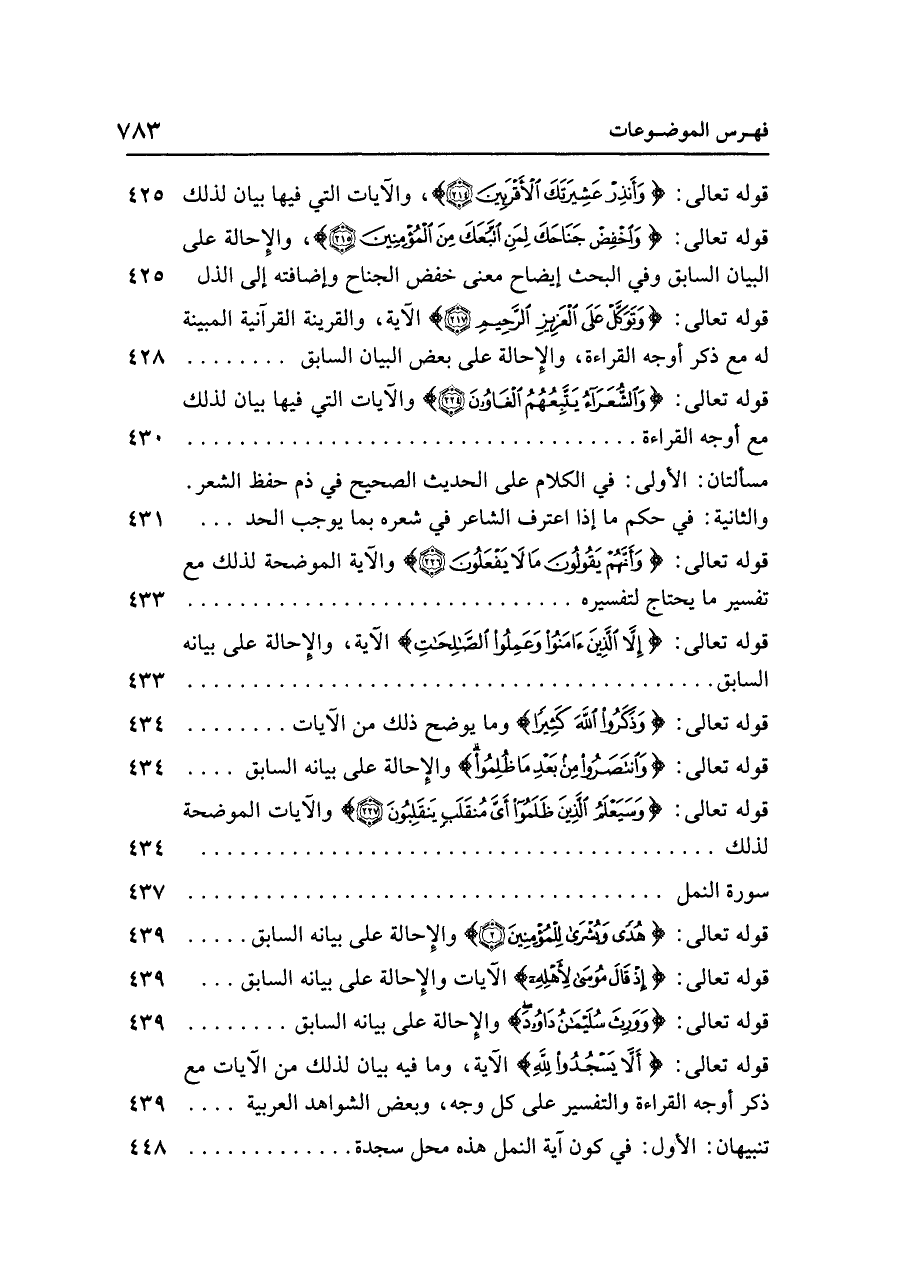 فهـرس الموضـوعات ٧٨٣
قوله تعالى: ﴿ وَأَنذِرْ عَشِيرَتَكَ ٱلْأَقْرَبِينَ ٢١٤﴾، والآيات التي فيها بيان لذلك ٤٢٥
قوله تعالى: ﴿ وَٱخْفِضْ جَنَاحَكَ لِمَنِ ٱتَّبَعَكَ مِنَ ٱلْمُؤْمِنِينَ ٢١٥﴾، والإحالة على
البيان السابق وفي البحث إيضاح معنى خفض الجناح وإضافته إلى الذل ٤٢٥
قوله تعالى: ﴿وَتَوَكَّلْ عَلَى ٱلْعَزِيزِ ٱلرَّحِيمِ ٢١٧﴾ الآية، والقرينة القرآنية المبينة
له مع ذكر أوجه القراءة، والإحالة على بعض البيان السابق ........ ٤٢٨
قوله تعالى: ﴿وَٱلشُّعَرَآءُ يَتَّبِعُهُمُ ٱلْغَاوُۥنَ ٢٢٤﴾ والآيات التي فيها بيان لذلك
مع أوجه القراءة ................................... ٤٣٠
مسألتان: الأولى: في الكلام على الحديث الصحيح في ذم حفظ الشعر.
والثانية: في حكم ما إذا اعترف الشاعر في شعره بما يوجب الحد ... ٤٣١
قوله تعالى: ﴿ وَأَنَّهُمْ يَقُولُونَ مَا لَا يَفْعَلُونَ ٢٢٦﴾ والآية الموضحة لذلك مع
تفسير ما يحتاج لتفسيره .............................. ٤٣٣
قوله تعالى: ﴿ إِلَّا ٱلَّذِينَ ءَامَنُوا۟ وَعَمِلُوا۟ ٱلصَّـٰلِحَـٰتِ﴾ الآية، والإحالة على بيانه
السابق......................................... ٤٣٣
قوله تعالى: ﴿ وَذَكَرُوا۟ ٱللَّهَ كَثِيرًا﴾ وما يوضح ذلك من الآيات ........ ٤٣٤
قوله تعالى: ﴿وَٱنتَصَرُوا۟ مِنۢ بَعْدِ مَا ظُلِمُوا۟ۗ﴾ والإحالة على بيانه السابق .... ٤٣٤
قوله تعالى: ﴿ وَسَيَعْلَمُ ٱلَّذِينَ ظَلَمُوٓا۟ أَىَّ مُنقَلَبٍ يَنقَلِبُونَ ٢٢٧﴾ والآيات الموضحة
لذلك ........................................ ٤٣٤
سورة النمل ..................................... ٤٣٧
قوله تعالى: ﴿ هُدًى وَبُشْرَىٰ لِلْمُؤْمِنِينَ ٢﴾ والإحالة على بيانه السابق..... ٤٣٩
قوله تعالى: ﴿ إِذْ قَالَ مُوسَىٰ لِأَهْلِهِۦٓ﴾ الآيات والإحالة على بيانه السابق ... ٤٣٩
قوله تعالى: ﴿وَوَرِثَ سُلَيْمَـٰنُ دَاوُۥدَۖ﴾ والإحالة على بيانه السابق ........ ٤٣٩
قوله تعالى: ﴿ أَلَّا يَسْجُدُوا۟ لِلَّهِ﴾ الآية، وما فيه بيان لذلك من الآيات مع
ذكر أوجه القراءة والتفسير على كل وجه، وبعض الشواهد العربية .... ٤٣٩
تنبيهان: الأول: في كون آية النمل هذه محل سجدة............. ٤٤٨